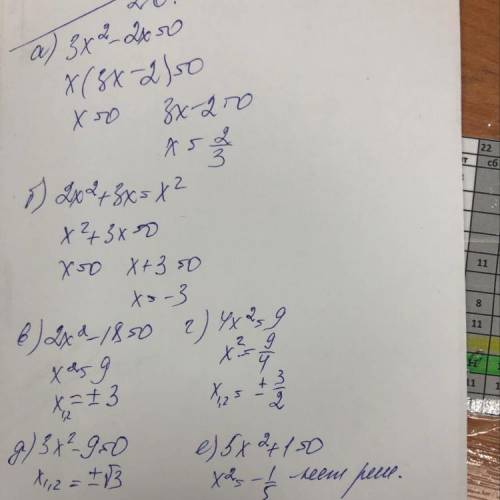 а) 3x² - 2x = 0
x(3x - 2) = 0
x = 0 3x - 2 = 0
x = 2/3
б) 2x² + 3x = x²
x² + 3x = 0
x = 0 x + 3 = 0
x = -3
в) 2x² - 18 = 0
x² = 9
x₁,₂ = ± 3
г) 4x² = 9
x² = 9/4
x₁,₂ = ± 3/2
д) 3x² - 9 = 0
x₁,₂ = ±√3
е) 5x² + 1 = 0
x² = - 1/5 - нет реш.
22
сб
11
8
11